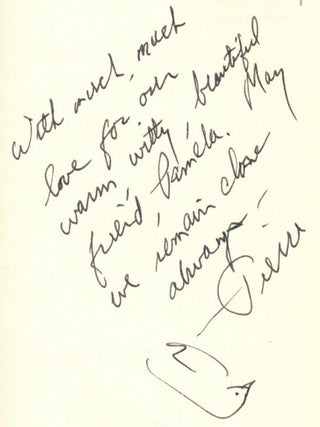 With much, much
love for our
warm, witty, beautiful
friend, Pamela. May
we remain close
always –